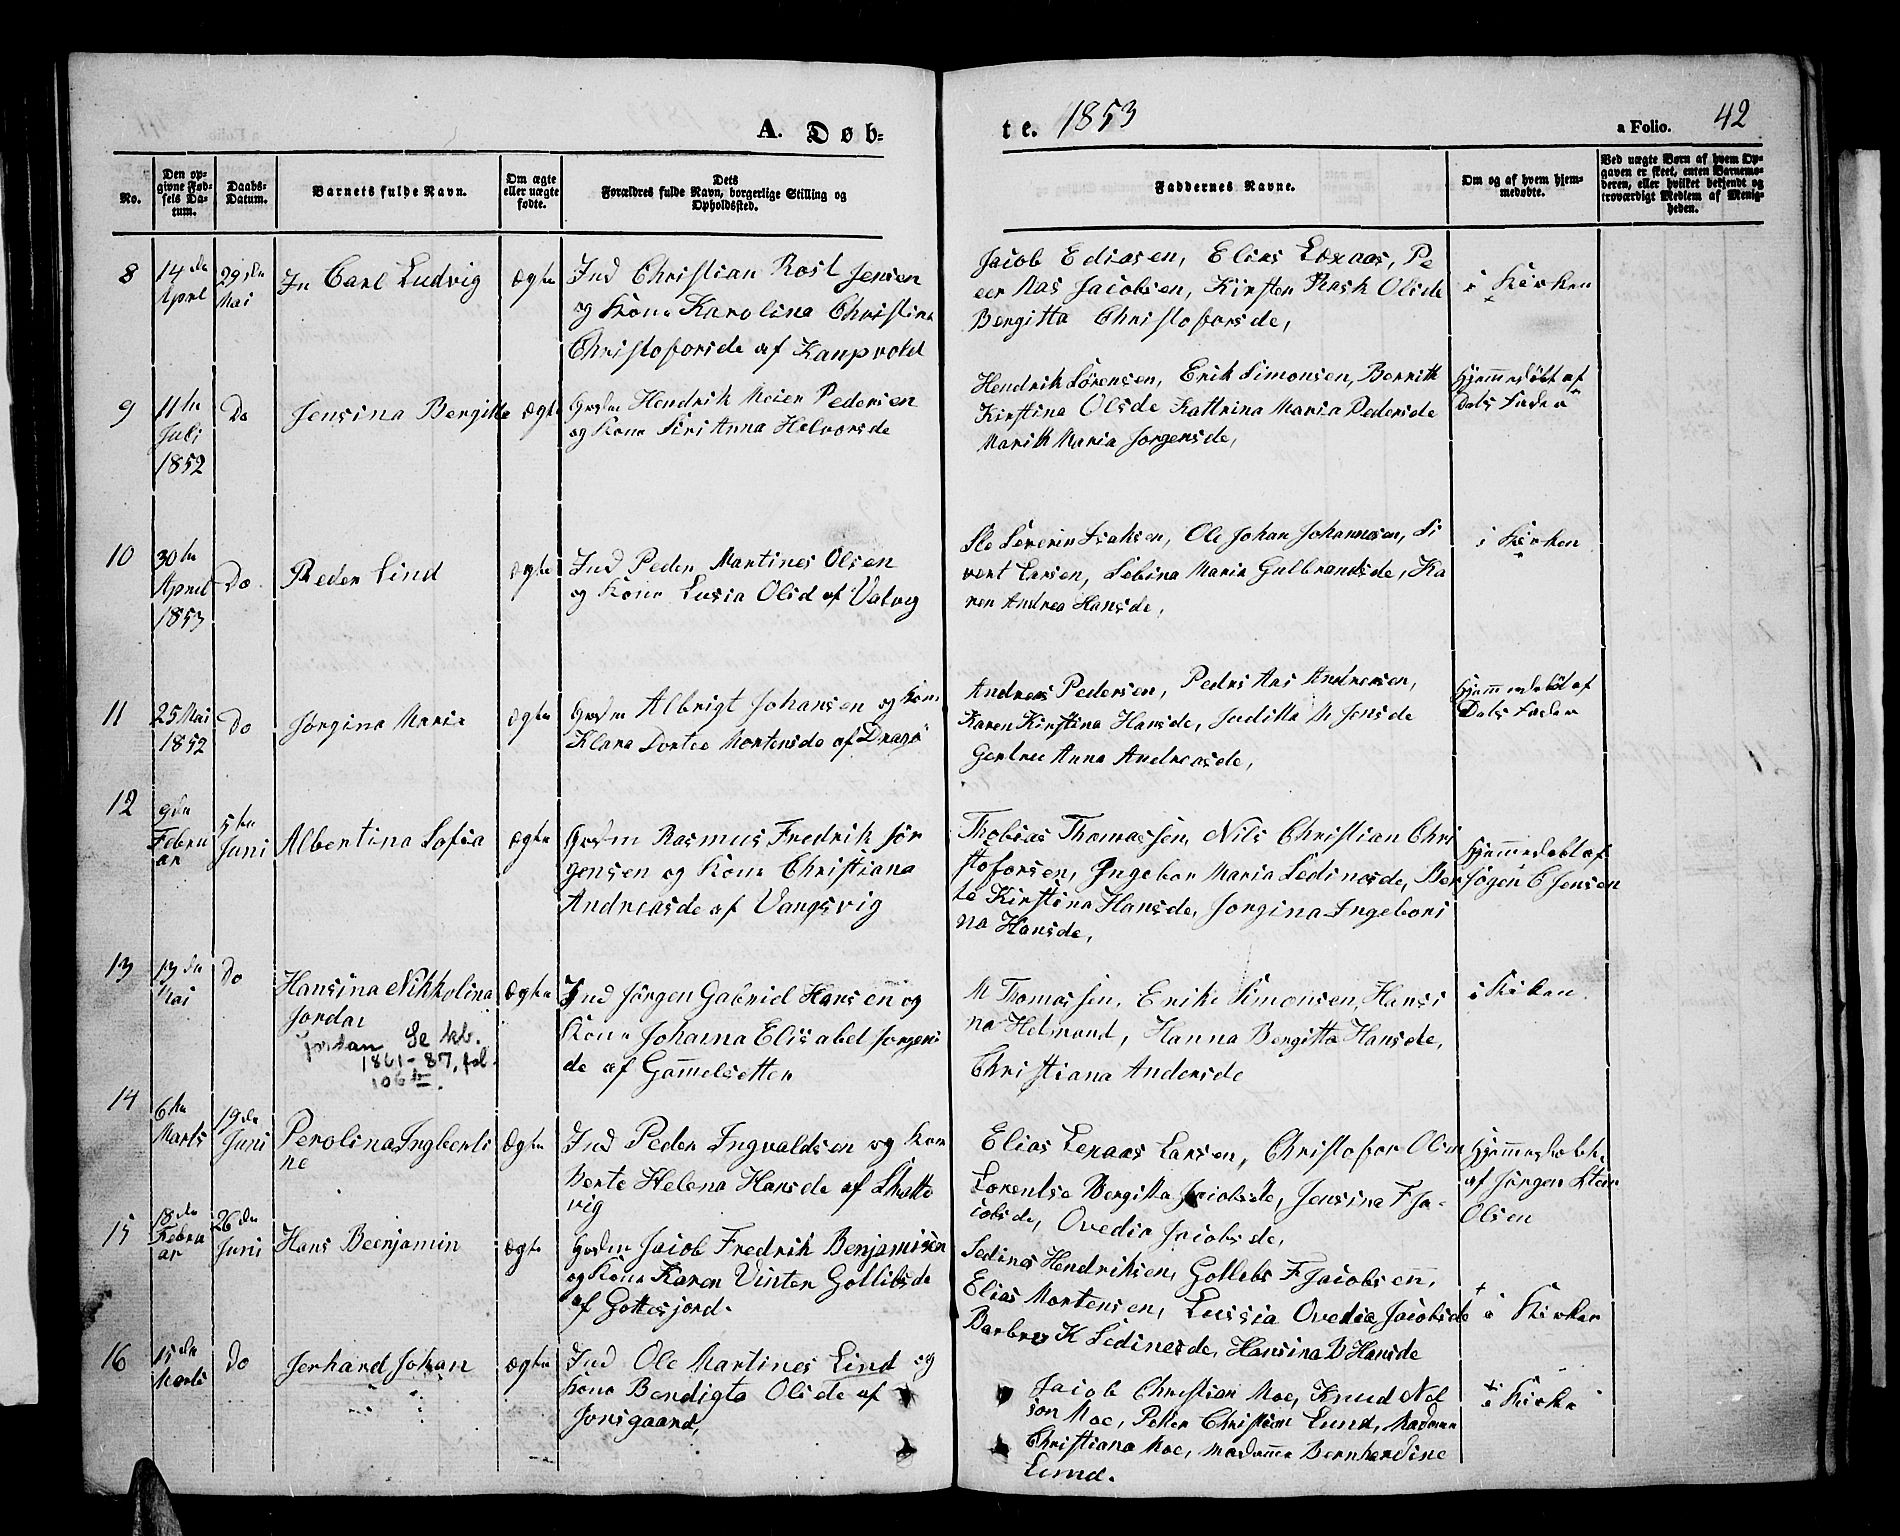 A. Døb=
te. 1853
a Folio. 42
No.
Den op-
givne Fød-
sels Da-
tum.
Daabs-
Datum.
Barnets fulde Navn.
Om ægte
eller uægte
fødte.
Dets
Forældres fulde Navn, borgerlige Stilling og
Opholdssted.
Faddernes Navne.
Om og af hvem hjem-
medøbte.
Ved uægte Børn af hvem Op-
gaven er skeet, enten Barnemo-
deren, eller hvilket bekjendt og
troværdigt Medlem af Menig-
heden.
8
14 de
April
29 de
Mai
Carl Ludvig
Ægte
Ind Christian Rost Jensen
og Kone Karolina Christina
Christofersde af Kanpvold
Jacob Ediasen, Elias Lexaas, Pe
der Aas Jacobsen, Kirsten Rask Olsde
Bergitta Christofersde,
i Kirken
9
11te
Juli
1852
Do
Jensina Bergitte
Ægte
Hendrik Meier Pedersen
og Kone Siri Anna Helvorsde
Hendrik Sørensen, Erik Simonsen, Berrith
Kirstina Olsde Kattrina Maria Pedersde
Marith Maria Jørgensde,
Hjemmedøbt af
Dets Fader
10
30te
April
1853
Do.
Peder Lind
Ægte
Ind Peder Martines Olsen
og Kone Lusia Olsd af Valvig
Ole Severin Isaksen, Ole Johan Johannesen, Si
vert Larsen, Sebina Maria Gulbrandsde, Ka
ren Andrea Hansde,
i Kirken
11
25 Mai
1852
Do
Jørgina Maria
Ægte
Albrigt Johansen og Kone
Klara Dortea Mortensde af Dragø
Andreas Pedersen, Peder Aas Andresen,
Karen Kirstina Hansde, Juditta M Jensde
Gertru Anna Andreasde,
Hjemmedøbt af
Dets Fader
12
9de
Febru
ar
5te
Juni
Albertina Sofia
Ægte
Rasmus Fredrik Jør
gensen og Kone Christiana
Andreasde af Vangsvig
Thobias Thomassen, Nils Christian Chri
stofersen, Ingebor Maria Sedinesde, Ber
te Kirstina Hansde, Jorgina Ingebori
na Hansde,
Hjemmedøbt af
Jøgen C Jensen
13
13de
Mai
Do
Hansina Nikkolina
Jordan
Jordan Se kb.
1861-87, fol.
106 b.
Ægte
Ind Jørgen Gabriel Hansen og
Kone Johanna Elisabet Jorgens
de af Gammelsetten
M Thomassen, Erik Simonsen, Hansi
na Helmand, Hanna Bergitta Hansde,
Christiana Andersde
i Kirken.
14
6te
Marts
19de
Juni
Perolina Ingberti
ne
Ægte
Ind Peder Ingvaldsen og Kone
Berte Helena Hansde af Skatte
vig
Elias Lexaas Larsen, Christofer Olsen
Lorentse Bergitta Jacobsde, Jensina F Ja-
cobsde, Ovedia Jacobsde,
Hjemmedøbt
af Jørgen Stein
Olsen
15
18de
Febru
ar
26de
Juni
Hans Beenjamin
Ægte
Jacob Fredrik Benjamisen
og Kone Karen Vinter Gotlibsde
af Gottesjord.
Sedines Hendriksen, Gotlebs F Jacobsenn,
Elias Mortensen, Lussia Ovedia Jacobsde
Barbro K Sedinesde, Hansina B Hansde
i Kirken
16
15de
Marts
Do
Jerhard Johan
Ægte
Ind Ole Martines Lind og
Kone Bendigta Olsde af
Jensgaard,
Jacob Christian Moe, Knud Nel
son Moe, Peter Christian Lund, Madame
Christiana Moe, Madamme Bernhardine
Lund.
i Kirke